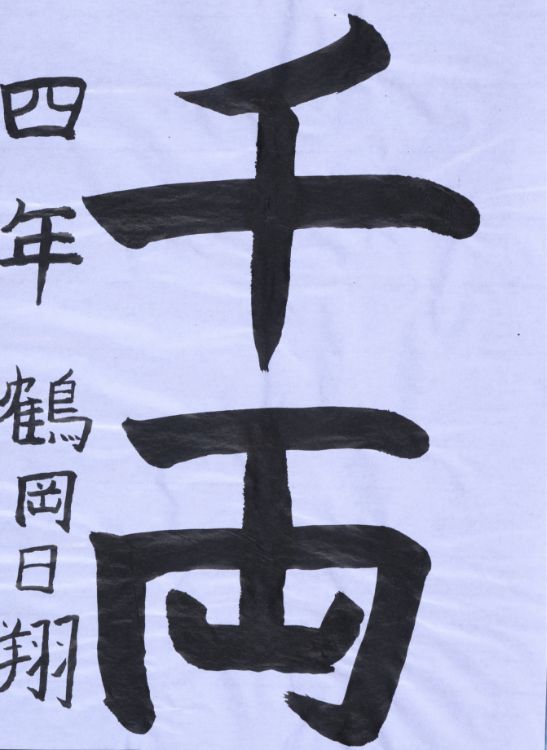 千両
四年 鶴岡日翔